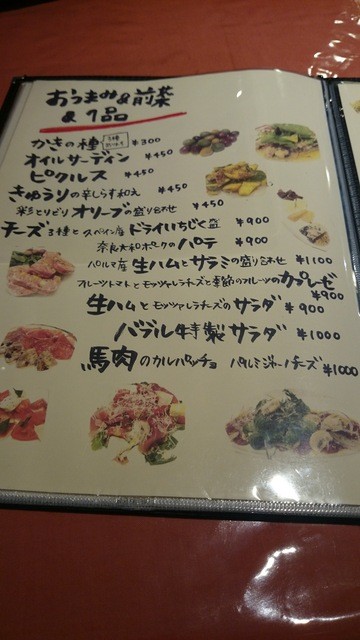 おつまみ&前菜
&1品
かきの種 ¥300
オイルサーディン ¥450
ピクルス ¥450
きゅうりの辛しらす和え ¥450
彩とりどりオリーブの盛り合わせ ¥450
チーズ3種とスペイン産ドライいちじく盛 ¥900
奈良大和ポークのパテ ¥900
パルマ産生ハムとサラミの盛り合せ ¥1100
フルーツトマトとモッツァレラチーズと季節のフルーツのカプレーゼ
¥900
生ハムとモッツァレラチーズのサラダ ¥900
バブル特製サラダ ¥1000
馬肉のカルパッチョ パルミジャーノチーズ ¥1000